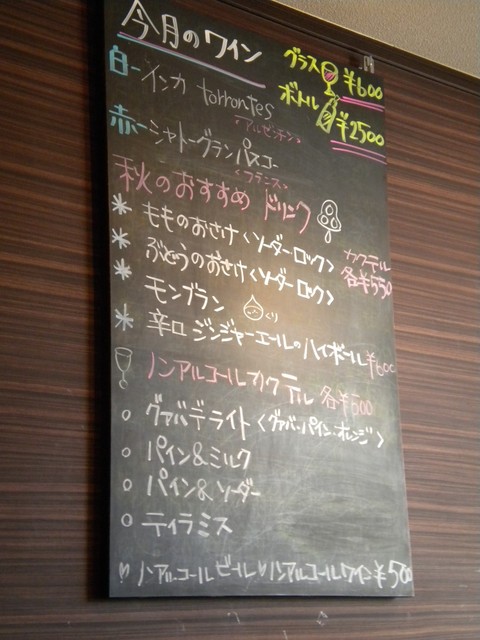 今月のワイン
グラス ¥600
ボトル ¥2500
白-インカ torrontes
<アルゼンチン>
赤-シャトーグランパスコー
<フランス>
秋のおすすめ ドリンク
* もものおさけ <ソーダーロック>
カクテル
各¥550
* ぶどうのおさけ <ソーダーロック>
* モンブラン くり
* 辛口ジンジャーエールのハイボール ¥600
ノンアルコールカクテル 各¥500
○ グァバデライト <グァバ・パイン・オレンジ>
○ パイン&ミルク
○ パイン&ソーダー
○ ティラミス
♡ ノンアルコールビール ♡ ノンアルコールワイン ¥500